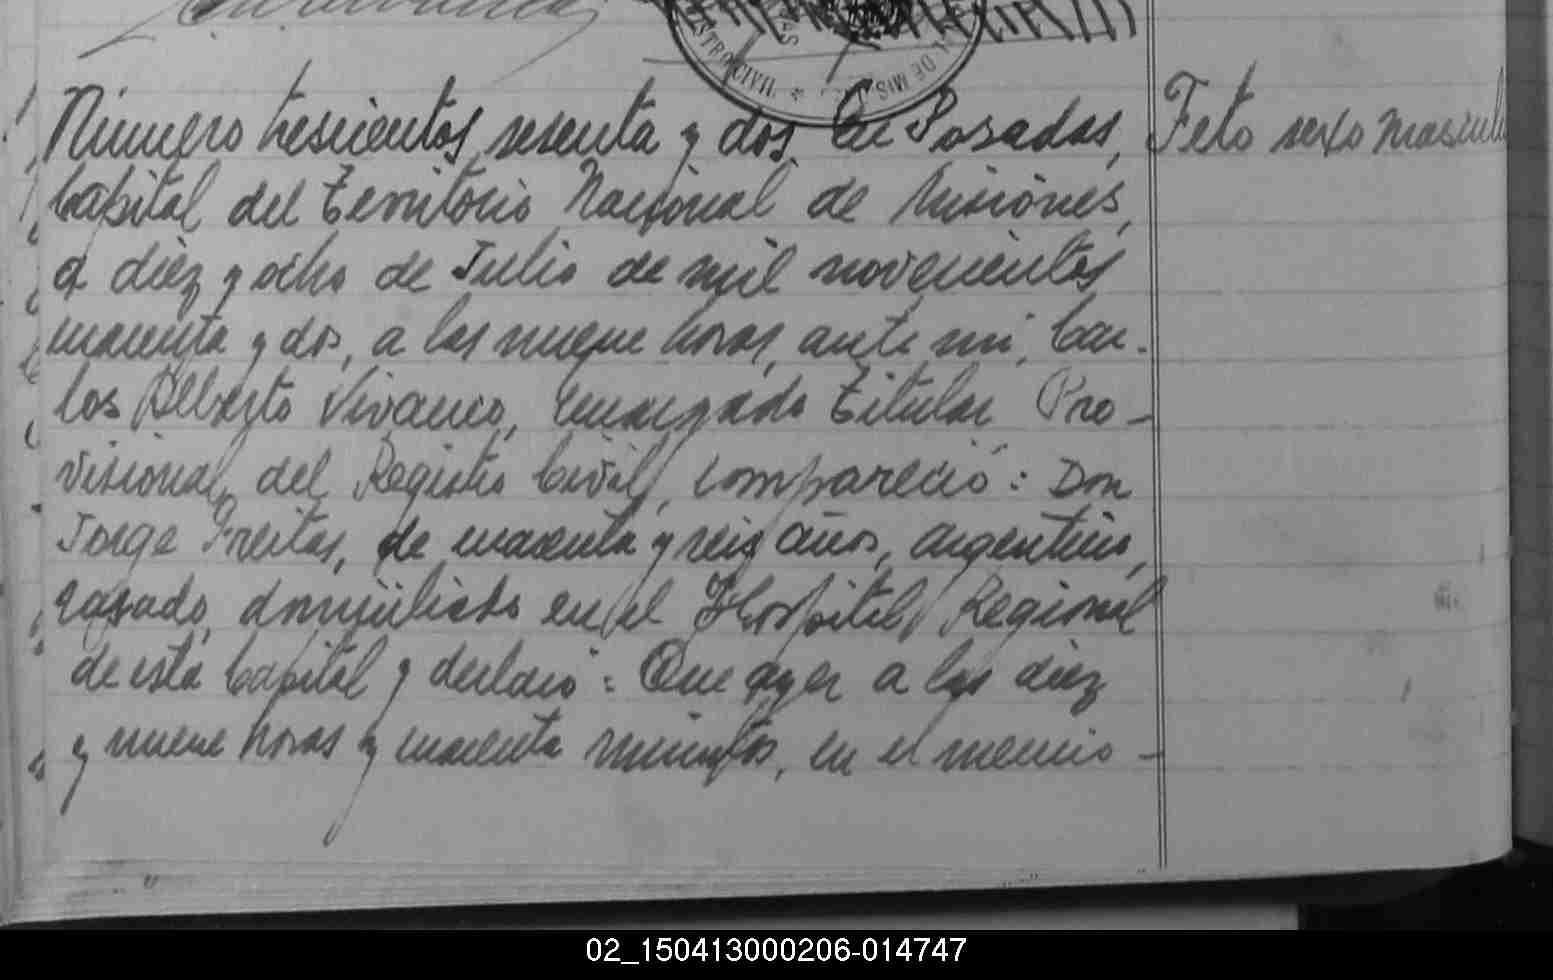 STRO CIVIL * DE MIS
Número trescientos sesenta y dos. En Posadas,
Feto sexo mascul
Capital del Territorio Nacional de Misiones,
a diez y ocho de Julio de mil novecientos
cuarenta y dos, a las nueve horas, ante mi, Car-
los Alberto Vivanco, encargado Titular Pro-
visional, del Registro Civil, compareció: Don
Jorge Freitas, de cuarenta y seis años, argentino,
casado, domiciliado en el Hospital Regional
de esta Capital y declaró: Que ayer a las diez
y nueve horas y cuarenta minutos, en el mencio-
02_150413000206-014747